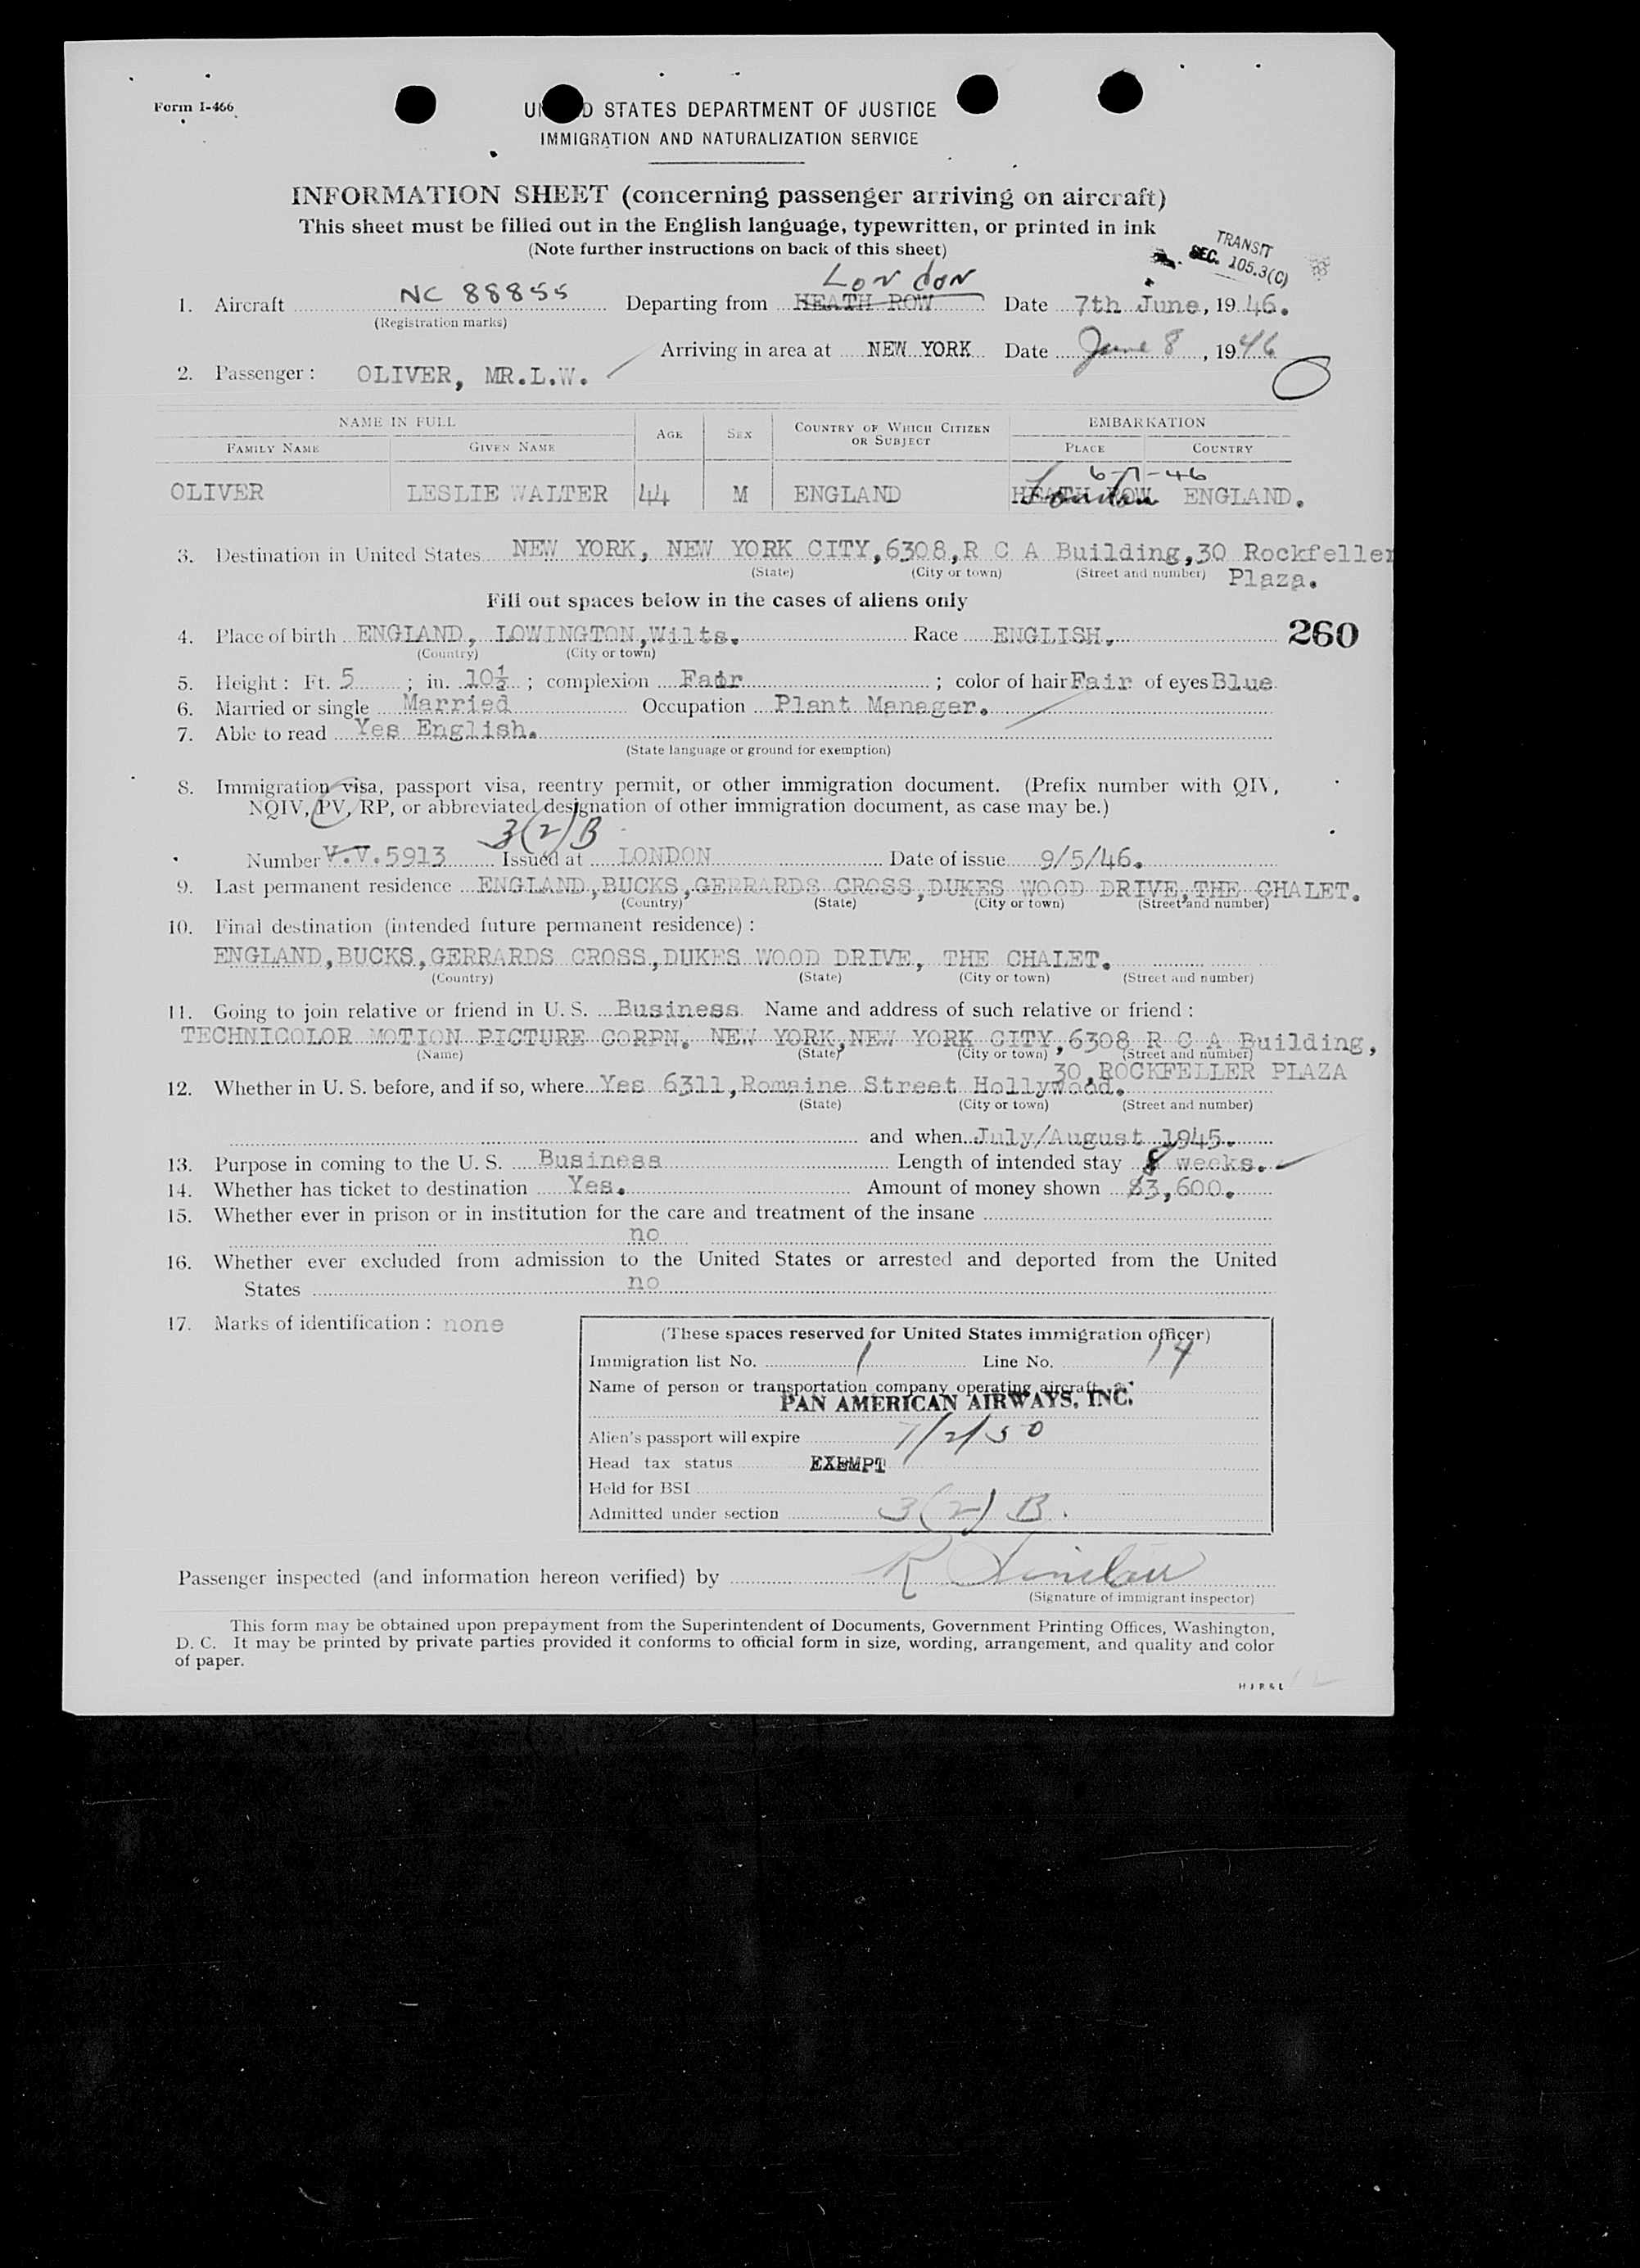 Form I-466
UNITED STATES DEPARTMENT OF JUSTICE
IMMIGRATION AND NATURALIZATION SERVICE
INFORMATION SHEET (concerning passenger arriving on aircraft)
This sheet must be filled out in the English language, typewritten, or printed in ink
(Note further instructions on back of this sheet)
TRANSIT
SEC. 105.3(C)
LONDON
1. Aircraft NC 88855 Departing from HEATH ROW Date 7th June, 1946.
(Registration marks)
Arriving in area at NEW YORK Date June 8, 1946
2. Passenger: OLIVER, MR.L.W.
NAME IN FULL AGE SEX COUNTRY OF WHICH CITIZEN OR SUBJECT EMBARKATION
FAMILY NAME GIVEN NAME PLACE COUNTRY
6-7-46
OLIVER LESLIE WALTER 44 M ENGLAND HEATH ROW London ENGLAND.
3. Destination in United States NEW YORK, NEW YORK CITY,6308,R C A Building,30 Rockfeller
(State) (City or town) (Street and number) Plaza.
Fill out spaces below in the cases of aliens only
4. Place of birth ENGLAND, LOWINGTON,Wilts. Race ENGLISH. 260
(Country) (City or town)
5. Height: Ft. 5; in. 10½; complexion Fair; color of hair Fair of eyes Blue
6. Married or single Married Occupation Plant Manager.
7. Able to read Yes English.
(State language or ground for exemption)
8. Immigration visa, passport visa, reentry permit, or other immigration document. (Prefix number with QIV,
NQIV, PV, RP, or abbreviated designation of other immigration document, as case may be.)
3(2)B
Number V.V.5913 Issued at LONDON Date of issue 9/5/46.
9. Last permanent residence ENGLAND,BUCKS,GERRARDS CROSS,DUKES WOOD DRIVE,THE CHALET.
(Country) (State) (City or town) (Street and number)
10. Final destination (intended future permanent residence):
ENGLAND,BUCKS,GERRARDS CROSS,DUKES WOOD DRIVE, THE CHALET.
(Country) (State) (City or town) (Street and number)
11. Going to join relative or friend in U. S. Business Name and address of such relative or friend:
TECHNICOLOR MOTION PICTURE CORPN. NEW YORK,NEW YORK CITY,6308 R C A Building,
(Name) (State) (City or town) (Street and number)
30,ROCKFELLER PLAZA
12. Whether in U. S. before, and if so, where Yes 6311,Romaine Street Hollywood.
(State) (City or town) (Street and number)
and when July/August 1945.
13. Purpose in coming to the U. S. Business Length of intended stay 8 weeks.
14. Whether has ticket to destination Yes. Amount of money shown $3,600.
15. Whether ever in prison or in institution for the care and treatment of the insane
no
16. Whether ever excluded from admission to the United States or arrested and deported from the United
States no
17. Marks of identification: none
(These spaces reserved for United States immigration officer)
Immigration list No. 1 Line No. 14
Name of person or transportation company operating aircraft
PAN AMERICAN AIRWAYS, INC.
Alien's passport will expire 7/2/50
Head tax status EXEMPT
Held for BSI
Admitted under section 3(2) B.
Passenger inspected (and information hereon verified) by R Sinclair
(Signature of immigrant inspector)
This form may be obtained upon prepayment from the Superintendent of Documents, Government Printing Offices, Washington,
D. C. It may be printed by private parties provided it conforms to official form in size, wording, arrangement, and quality and color
of paper.
H J R & L